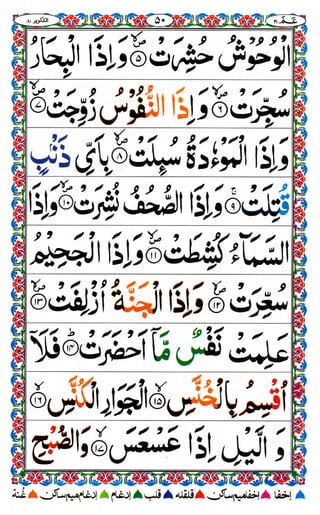 عـمّ ٣٠ ٥٠ التكوير ٨١
الْوُحُوْشُ حُشِرَتْ ۝٥ وَاِذَا الْبِحَارُ
سُجِّرَتْ ۝٦ وَاِذَا النُّفُوْسُ زُوِّجَتْ ۝٧
وَاِذَا الْمَوْءٗدَةُ سُىِٕلَتْ ۝٨ بِاَىِّ ذَنْۢبٍ
قُتِلَتْ ۝٩ وَاِذَا الصُّحُفُ نُشِرَتْ ۝١٠ وَاِذَا
السَّمَآءُ كُشِطَتْ ۝١١ وَاِذَا الْجَحِيْمُ
سُعِّرَتْ ۝١٢ وَاِذَا الْجَنَّةُ اُزْلِفَتْ ۝١٣
عَلِمَتْ نَفْسٌ مَّاۤ اَحْضَرَتْ ۝١٤ فَلَاۤ
اُقْسِمُ بِالْخُنَّسِ ۝١٥ الْجَوَارِ الْكُنَّسِ ۝١٦
وَ الَّيْلِ اِذَا عَسْعَسَ ۝١٧ وَالصُّبْحِ
اخفا اخفامیم ساکن قلقله قلب ادغام ادغام میم ساکن غنة